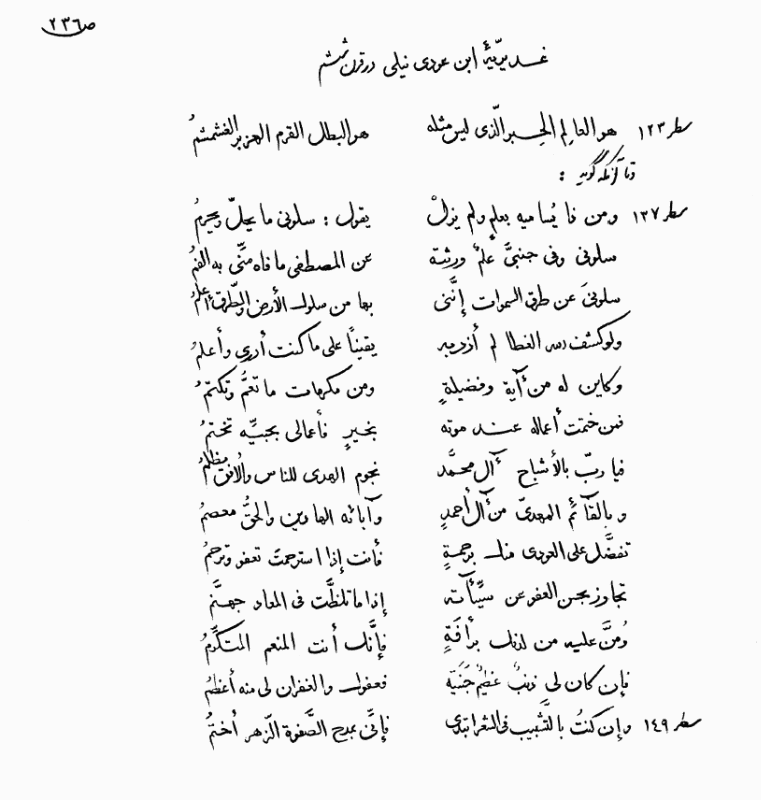 ص ٢٣٦
غديريّهٔ ابن عودی نیلی در قرن ششم
سطر ١٢٣ هو العالِم الحِبر الّذی لیس مثله هو البطل القرم الهزبر الغشمشمُ
تا آنکه گوید :
سطر ١٣٧ ومن ذا یُسامیه بعلمٍ ولم یزلْ یقول : سلونی ما یحلّ ویحرمُ
سلونی وفی جنبیَّ علمٌ ورثته عن المصطفی ما فاه منّی به الفمُ
سلونیَ عن طرق السموات إنَّنی بها من سلوك الأرض والطّرق أعلمُ
ولو کشف الله الغطا لم أزد به یقیناً علی ما کنت أدری وأعلمُ
وکاین له من آیة وفضیلةٍ ومن مکرمات ما تعمُّ وتکتمُ
فمن ختمت أعماله عند موته بخیرٍ فأعمالی بحبّیه تختمُ
فیا ربّ بالأشباح آل محمَّد نجوم الهدی للناس والاُفق مظلمُ
وبالقآئم المهدیّ من آل أحمدٍ وآبائه الهادین والحقُّ معصمُ
تفضَّل علی العودی منك برحمةٍ فأنت إذا استرحمتَ تعفو وترحمُ
تجاوز بحسن العفو عن سیّئآته إذا ما تلظَّت فی المعاد جهنَّم
ومُنَّ علیه من لدنك برأفةٍ فإنَّك أنت المنعم المتکرِّمُ
فإن کان لی ذنبٌ عظیمٌ جَنَیته فعفوك والغفران لی منه أعظمُ
سطر ١٤٩ وإن کنتُ بالتَّشبیب فی الشعر ابتدی فإنّی بمدح الصَّفوة الزّهر أختمُ